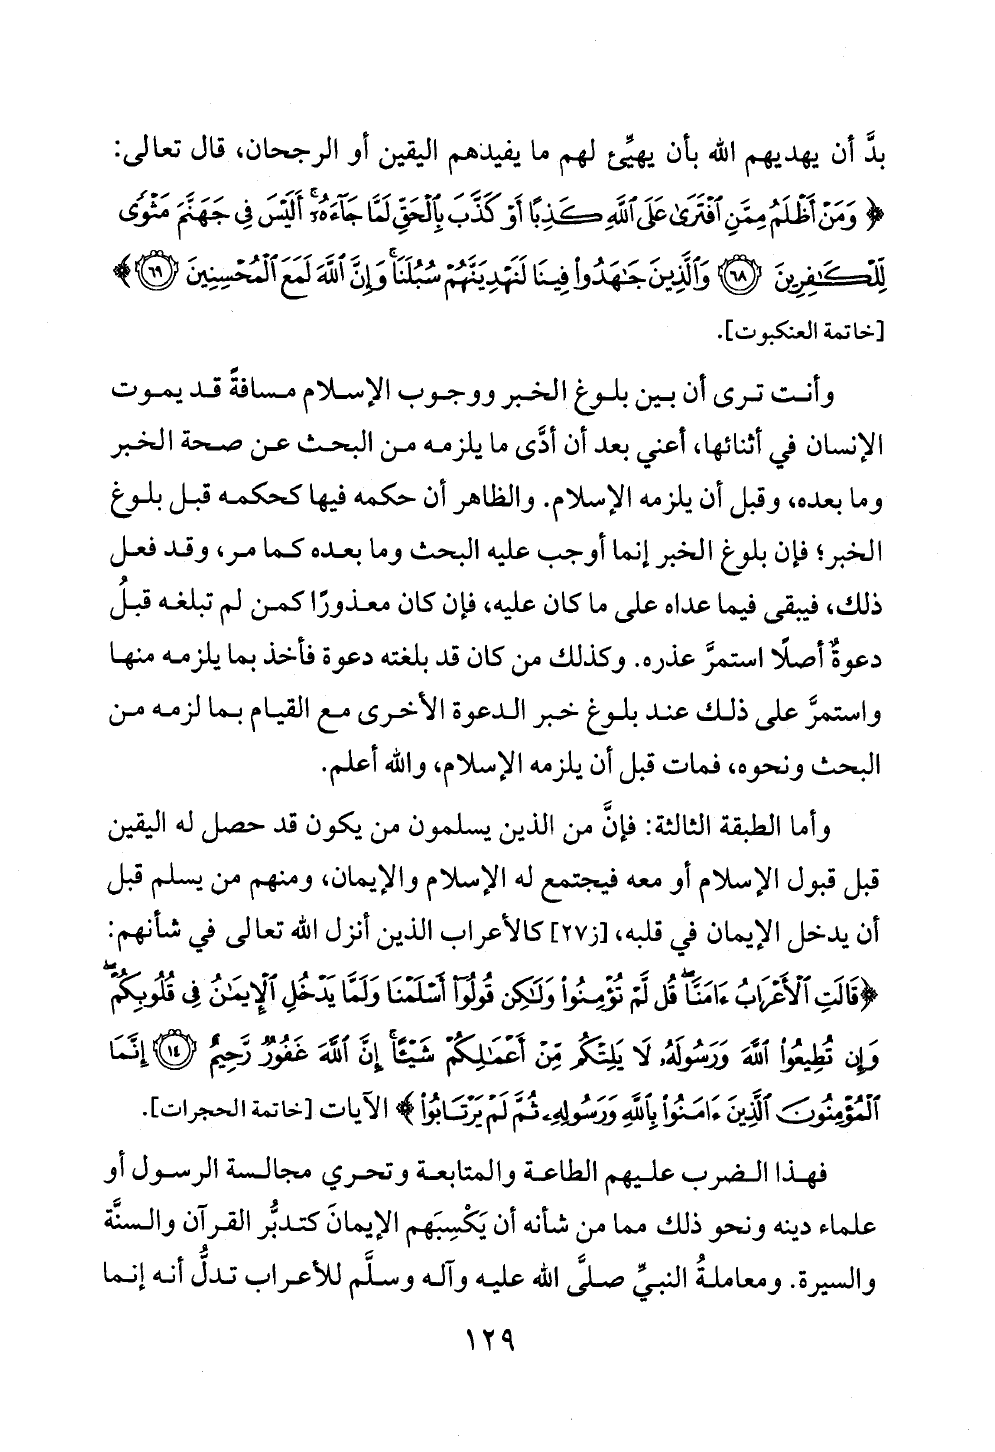 بدَّ أن يهديهم الله بأن يهيِّئ لهم ما يفيدهم اليقين أو الرجحان، قال تعالى:
﴿وَمَنْ أَظْلَمُ مِمَّنِ ٱفْتَرَىٰ عَلَى ٱللَّهِ كَذِبًا أَوْ كَذَّبَ بِٱلْحَقِّ لَمَّا جَآءَهُۥٓ ۚ أَلَيْسَ فِى جَهَنَّمَ مَثْوًى
لِّلْكَٰفِرِينَ ۝٦٨ وَٱلَّذِينَ جَٰهَدُوا۟ فِينَا لَنَهْدِيَنَّهُمْ سُبُلَنَا ۚ وَإِنَّ ٱللَّهَ لَمَعَ ٱلْمُحْسِنِينَ ۝٦٩﴾
[خاتمة العنكبوت].
وأنت ترى أن بين بلوغ الخبر ووجوب الإسلام مسافةً قد يموت
الإنسان في أثنائها، أعني بعد أن أدَّى ما يلزمه من البحث عن صحة الخبر
وما بعده، وقبل أن يلزمه الإسلام. والظاهر أن حكمه فيها كحكمه قبل بلوغ
الخبر؛ فإن بلوغ الخبر إنما أوجب عليه البحث وما بعده كما مر، وقد فعل
ذلك، فيبقى فيما عداه على ما كان عليه، فإن كان معذورًا كمن لم تبلغه قبلُ
دعوةٌ أصلًا استمرَّ عذره. وكذلك من كان قد بلغته دعوة فأخذ بما يلزمه منها
واستمرَّ على ذلك عند بلوغ خبر الدعوة الأخرى مع القيام بما لزمه من
البحث ونحوه، فمات قبل أن يلزمه الإسلام، والله أعلم.
وأما الطبقة الثالثة: فإنَّ من الذين يسلمون من يكون قد حصل له اليقين
قبل قبول الإسلام أو معه فيجتمع له الإسلام والإيمان، ومنهم من يسلم قبل
أن يدخل الإيمان في قلبه، [ز٢٧] كالأعراب الذين أنزل الله تعالى في شأنهم:
﴿قَالَتِ ٱلْأَعْرَابُ ءَامَنَّا ۖ قُل لَّمْ تُؤْمِنُوا۟ وَلَٰكِن قُولُوٓا۟ أَسْلَمْنَا وَلَمَّا يَدْخُلِ ٱلْإِيمَٰنُ فِى قُلُوبِكُمْ ۖ
وَإِن تُطِيعُوا۟ ٱللَّهَ وَرَسُولَهُۥ لَا يَلِتْكُم مِّنْ أَعْمَٰلِكُمْ شَيْـًٔا ۚ إِنَّ ٱللَّهَ غَفُورٌ رَّحِيمٌ ۝١٤ إِنَّمَا
ٱلْمُؤْمِنُونَ ٱلَّذِينَ ءَامَنُوا۟ بِٱللَّهِ وَرَسُولِهِۦ ثُمَّ لَمْ يَرْتَابُوا۟﴾ الآيات [خاتمة الحجرات].
فهذا الضرب عليهم الطاعة والمتابعة وتحري مجالسة الرسول أو
علماء دينه ونحو ذلك مما من شأنه أن يَكْسِبَهم الإيمانَ كتدبُّر القرآن والسنَّة
والسيرة. ومعاملةُ النبيِّ صلَّى الله عليه وآله وسلَّم للأعراب تدلُّ أنه إنما
١٢٩